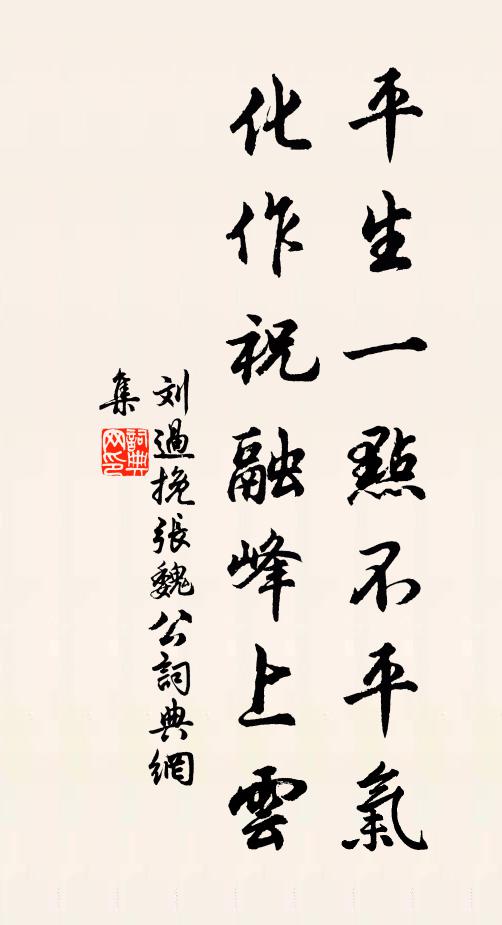 平生一點不平氣
化作祝融峰上雲
刘過挽張魏公詞典網
集
詞典
网印